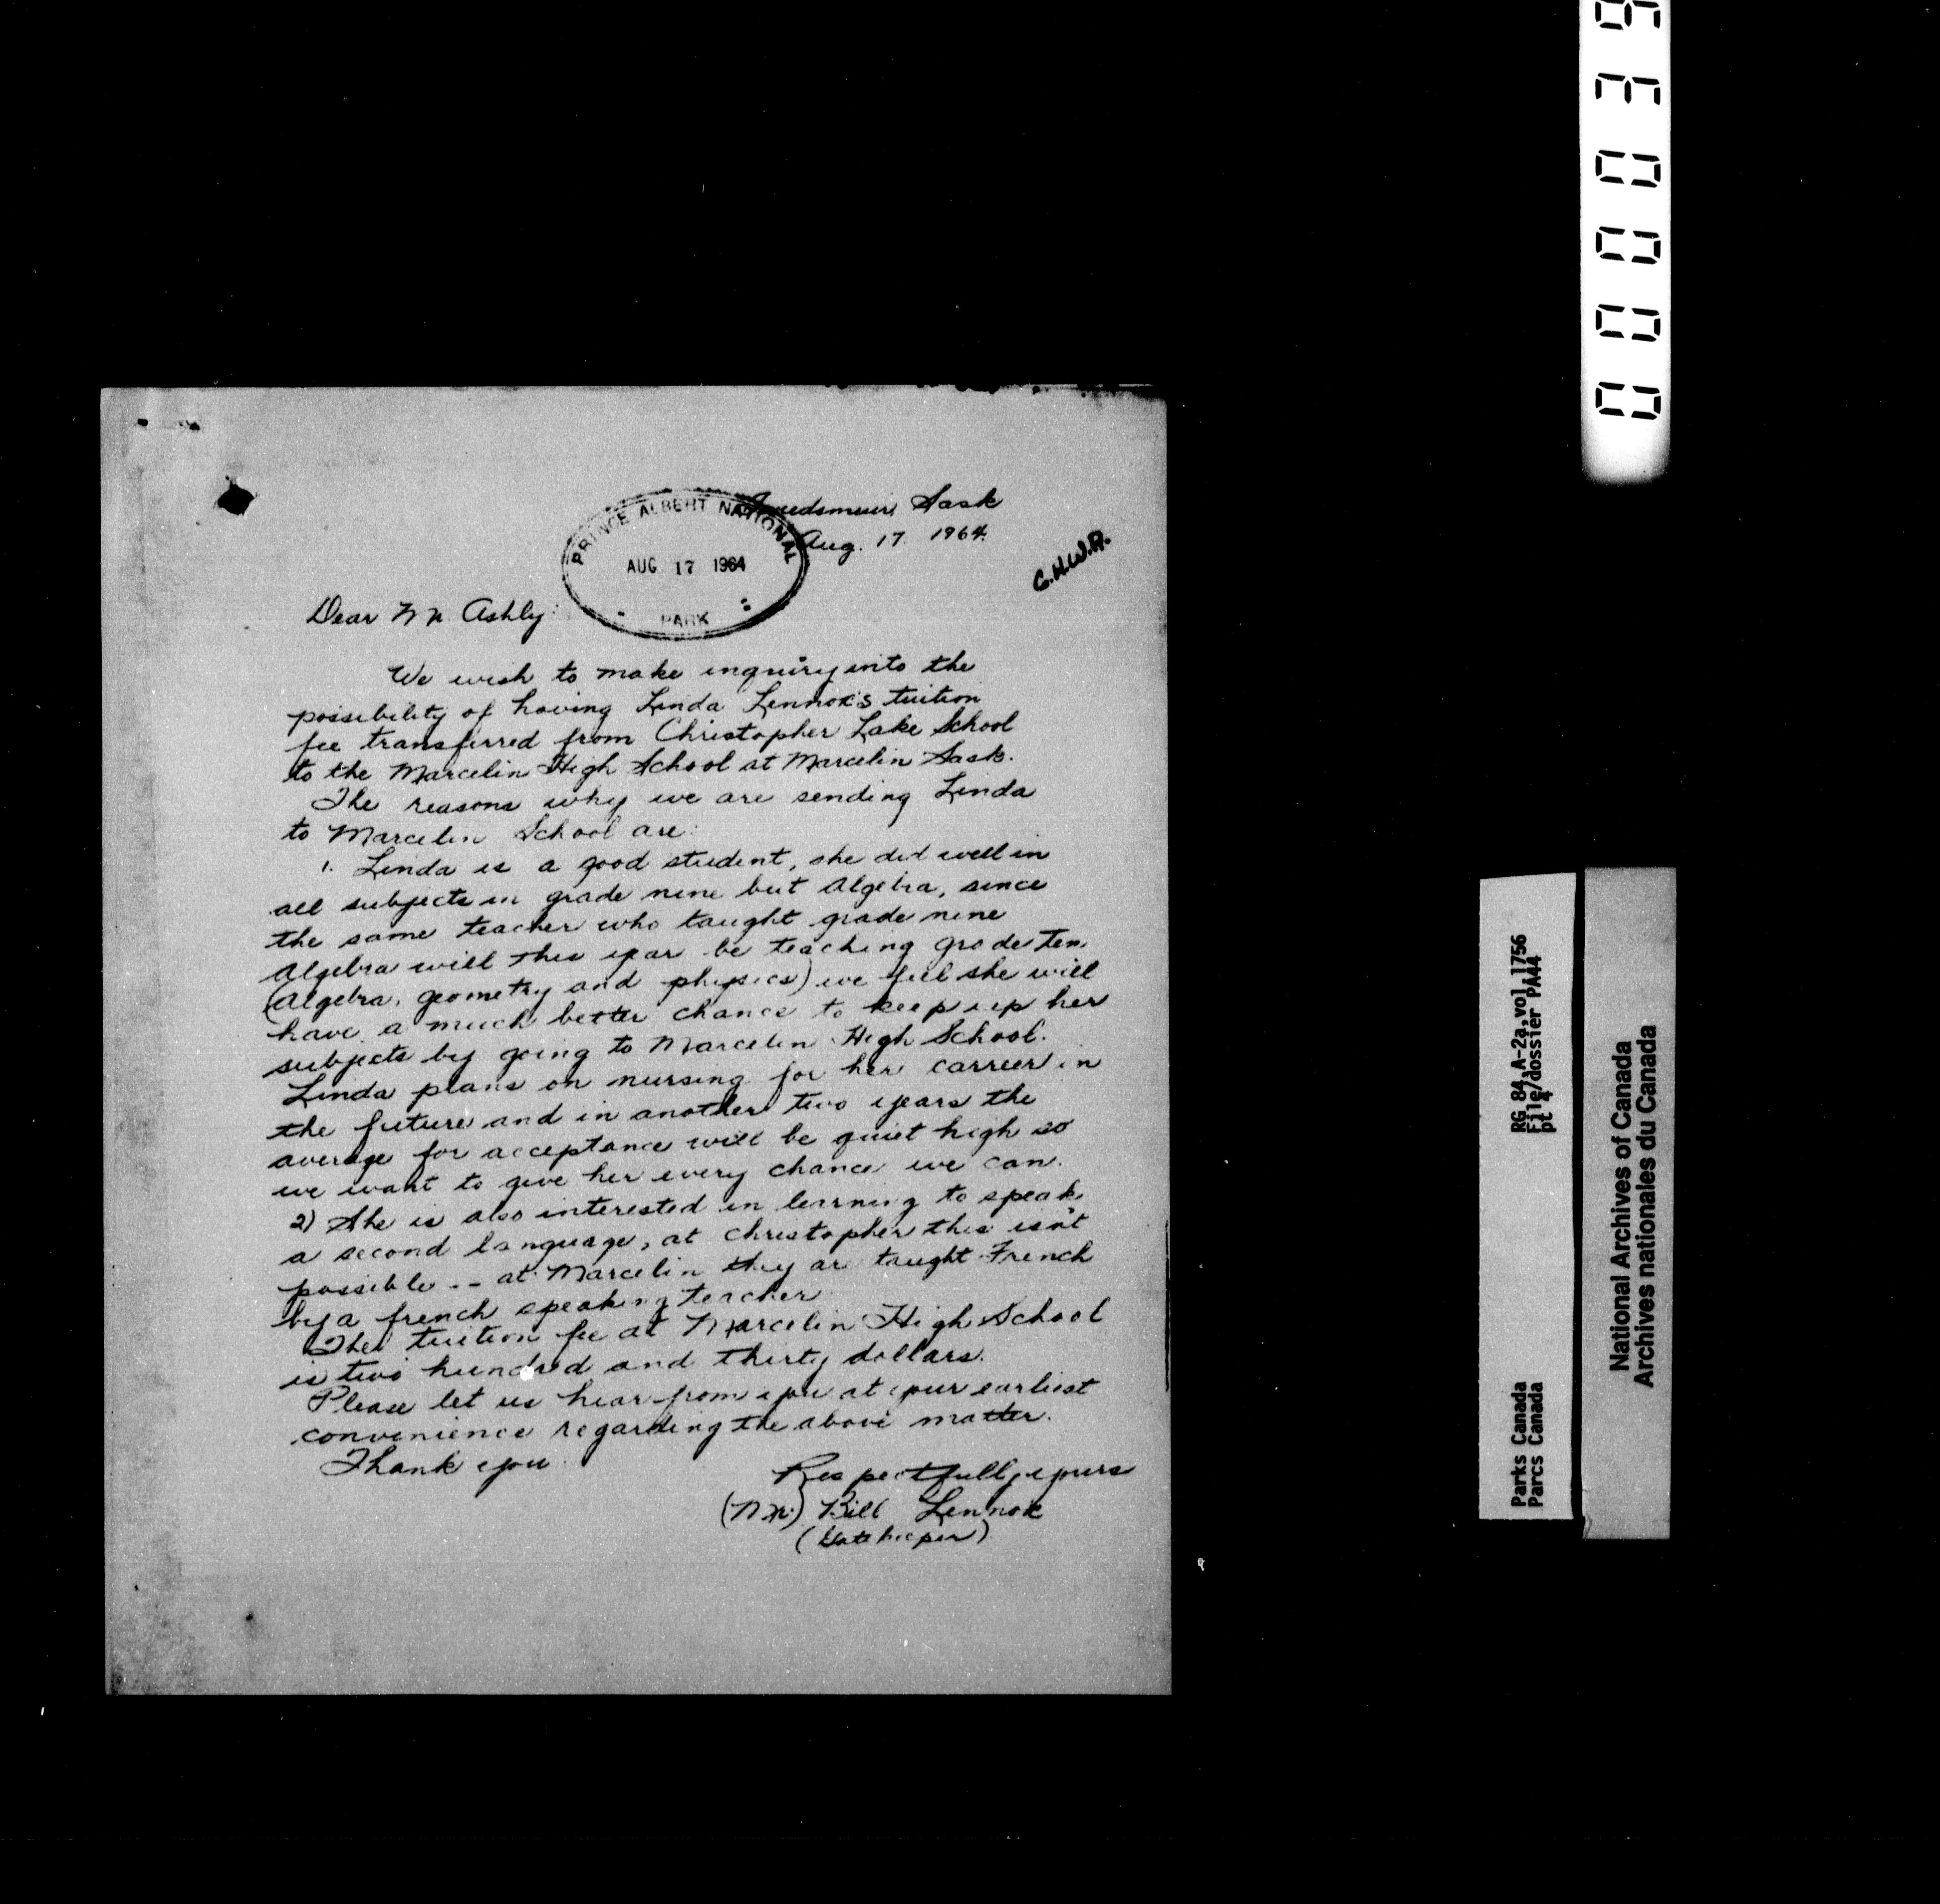 Tweedsmuir, Sask
Aug. 17. 1964.
PRINCE ALBERT NATIONAL
AUG 17 1964
PARK
G.H.W.A.
Dear Mr Ashly:
We wish to make inquiry into the
possibility of having Linda Lennox's tuition
fee transferred from Christopher Lake School
to the Marcelin High School at Marcelin Sask.
The reasons why we are sending Linda
to Marcelin School are:
1. Linda is a good student, she did well in
all subjects in grade nine but Algebra, since
the same teacher who taught grade nine
Algebra will this year be teaching grade ten
(Algebra, geometry and physics) we feel she will
have a much better chance to keep up her
subjects by going to Marcelin High School.
Linda plans on nursing for her carreer in
the future and in another two years the
average for acceptance will be quiet high so
we want to give her every chance we can.
2) She is also interested in learning to speak
a second language, at Christopher this isn't
possible -- at Marcelin they are taught French
by a french speaking teacher.
The tuition fee at Marcelin High School
is two hundred and thirty dollars.
Please let us hear from you at your earliest
convenience regarding the above matter.
Thank you.
Respectfully yours
(Mr.) Bill Lennox
(Gatekeeper)
RG 84, A-2a, vol 1756
File/dossier PA44
pt 4
Parks Canada
Parcs Canada
National Archives of Canada
Archives nationales du Canada